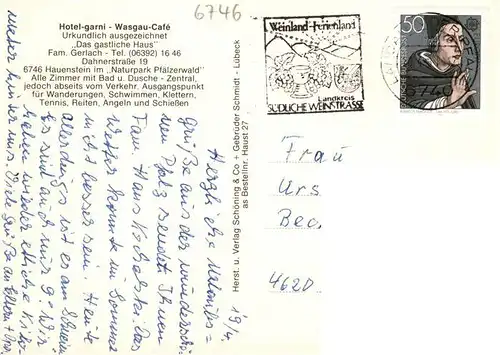 6746
Hotel-garni - Wasgau-Café
Urkundlich ausgezeichnet
„Das gastliche Haus"
Fam. Gerlach - Tel. (06392) 16 46
Dahnerstraße 19
6746 Hauenstein im „Naturpark Pfälzerwald"
Alle Zimmer mit Bad u. Dusche - Zentral,
jedoch abseits vom Verkehr. Ausgangspunkt
für Wanderungen, Schwimmen, Klettern,
Tennis, Reiten, Angeln und Schießen
Weinland - Ferienland
Landkreis
SÜDLICHE WEINSTRASSE
50
Herst. u. Verlag Schöning & Co + Gebrüder Schmidt · Lübeck
as Bestellnr. Haust 27
19/4.
Herzliche Urlaubs=
grüße aus der wunderschö
nen Pfalz sendet Ihnen
Fam. Hans
Das
Wetter könnte im Sommer
nicht besser sein. Heute
allerdings ist es am
es sind auch nur 9°. Wir
haben wieder etliche Kilo-
meter hinter uns. Viele Grüße an Eltern +
Frau
Urs
Bec
4620